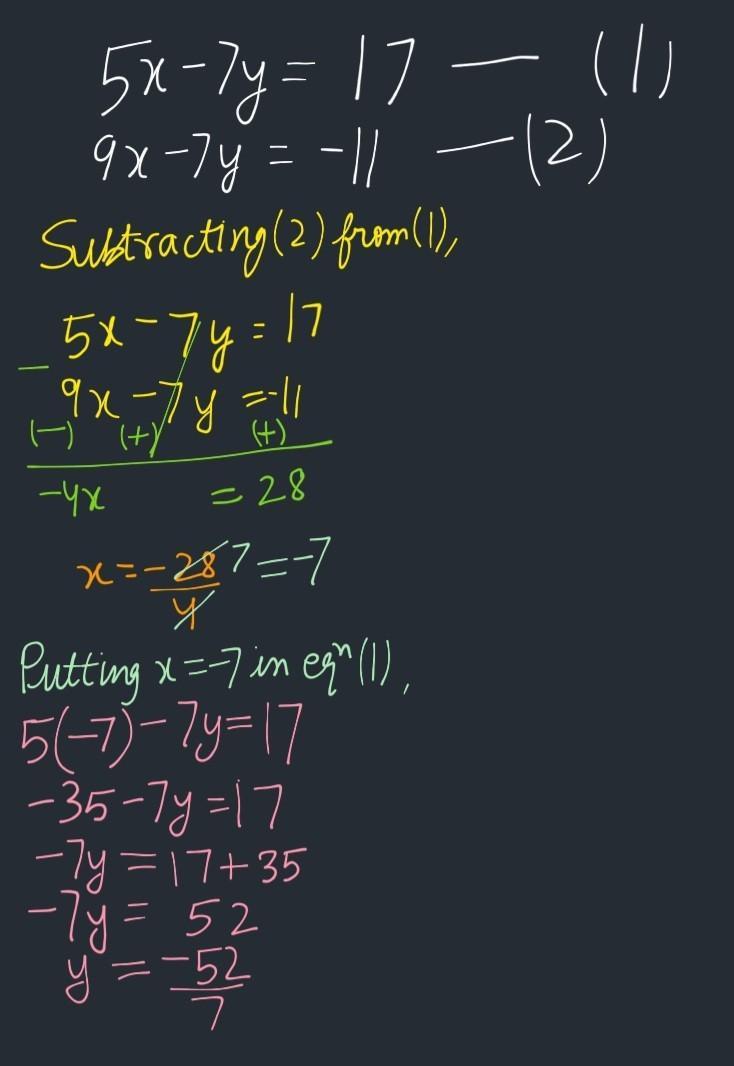 5x-7y = 17 — (1)
9x-7y = -11 — (2)
Subtracting (2) from (1),
5x - 7y = 17
- 9x - 7y = -11
(-) (+) (+)
-4x = 28
x = -28/4 7 = -7
Putting x = -7 in eqⁿ (1),
5(-7) - 7y = 17
-35 - 7y = 17
-7y = 17 + 35
-7y = 52
y = -52/7